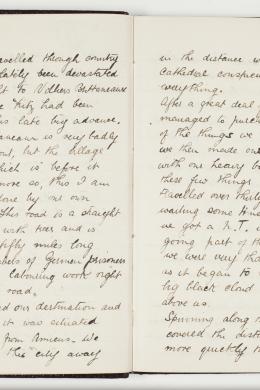 ravelled through country
lately been devastated
lt to Villers Bretonneaux
Fritz had been
his late big advance.
is very badly
out, but the village
which is before it
more so, This I am
lone by our own
This road is a straight
with trees and is
fifty miles long
bers of German prisoners
labouring work right
road.
ed our destination and
it was situated
from Amiens. We
this city away
in the distance w
Cathedral conspicu
everything.
After a great deal
managed to purc
of the things we
we then made our
with one heavy b
these few things
travelled over thirty
waiting some time
we got a M.T.
going part of th
we were very tha
as it began to
big black cloud
above us.
Spinning along th
covered the dist
more quickly th